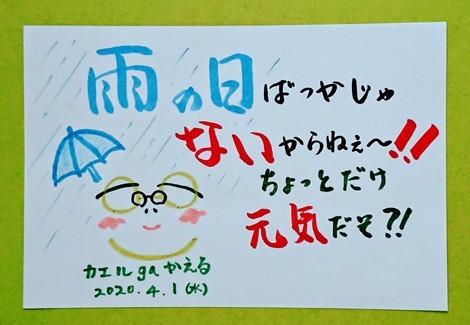 雨の日ばっかじゃ
ないからねぇ〜!!
ちょっとだけ
元気だぞ?!
カエルgaかえる
2020.4.1(水)